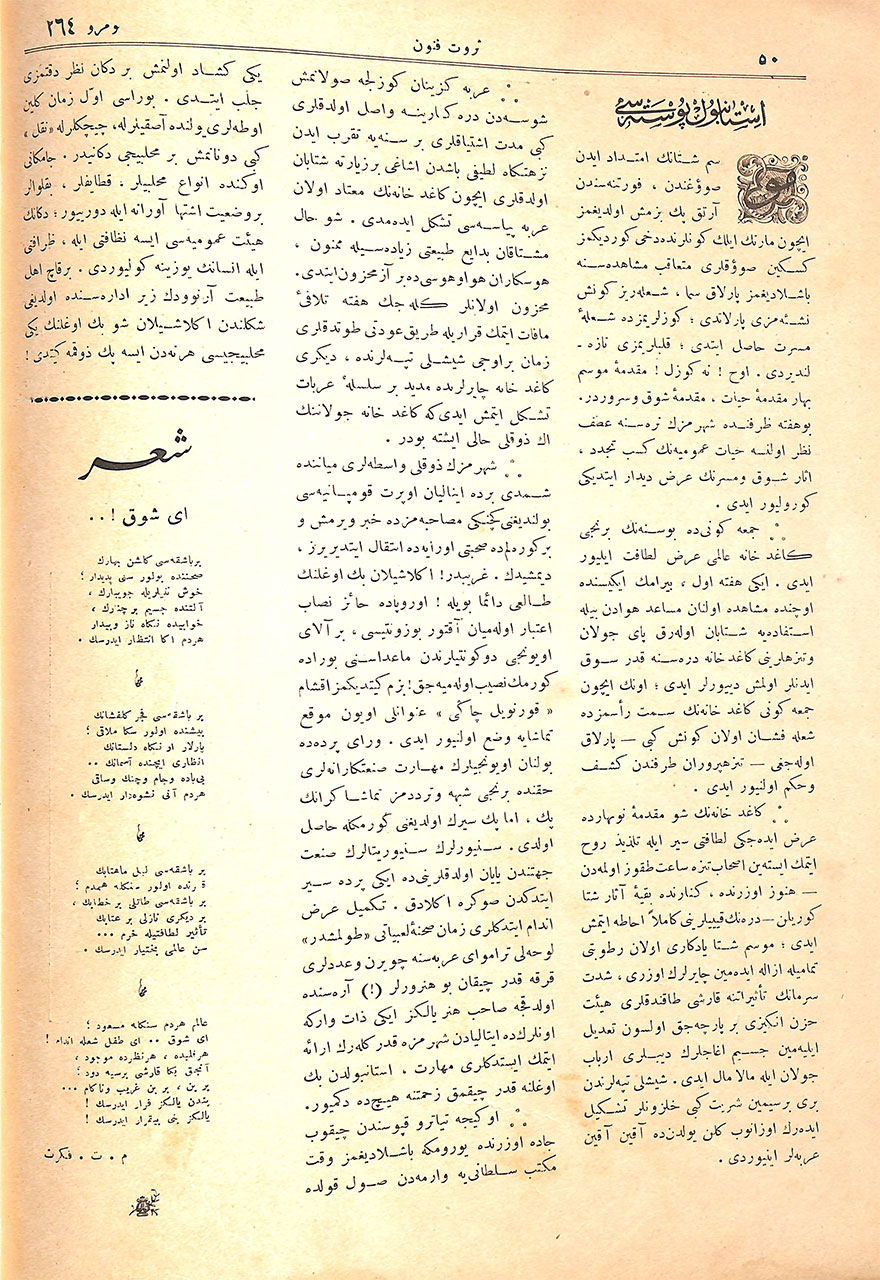 ٥٠
ثروت فنون
ومرو ٢٦٤
استانبول پوسته‌سی
موسم شتانك امتداد ایدن
صوؤغندن ، فورتنه‌سندن
آرتق پك بزمش اولدیغمز
ایچون مارتك ایلك كونلرنده‌دخی كوردیكمز
كسكین صوؤقلری متعاقب مشاهده‌سنه
باشلادیغمز پارلاق سما ، شعله‌ریز كونش
نشئه‌مزی پارلاتدی ؛ كوزلریمزده شعلهٔ
مسرت حاصل ایتدی ؛ قلبلریمزی تازه‌ـ
لندیردی . اوح ! نه كوزل ! مقدمهٔ موسم
بهار مقدمهٔ حیات ، مقدمهٔ شوق و سروردر.
بوهفته ظرفنده شهرمزك نره‌سنه عطف
نظر اولنسه حیات عمومیه‌نك كسب تجدد ،
اثار شوق ومسرتك عرض دیدار ایتدیكی
كورولیور ایدی .
جمعه كونی‌ده بوسنه‌نك برنجی
كاغد خانه عالمی عرض لطافت ایلیور
ایدی . ایكی هفته اول ، بیرامك ایكیسنده
اوچنده مشاهده اولنان مساعد هوادن بیله
استفاده‌یه شتابان اوله‌رق پای جولان
وتنزهلرینی كاغد خانه دره‌سنه قدر سوق
ایدنلر اولمش دییورلر ایدی ؛ اونك ایچون
جمعه كونی كاغد خانه‌نك سمت رأسمزده
شعله فشان اولان كونش كبی — پارلاق
اوله‌جغی — تنزهپروران طرفندن كشف
وحكم اولنیور ایدی .
كاغد خانه‌نك شو مقدمهٔ نوبهارده
عرض ایده‌جكی لطافتی سیر ایله تلذیذ روح
ایتمك ایسته‌ین اصحاب تنزه ساعت طقوز اولمه‌دن
— هنوز اوزرنده ، كنارنده بقیهٔ آثار شتا
كوریلن — دره‌نك قییلرینی كاملاً احاطه ایتمش
ایدی ؛ موسم شتا یادكاری اولان رطوبتی
تمامیله ازاله ایده‌مین چایرلرك اوزری ، شدت
سرمانك تأثیراتنه قارشی طاقندقلری هیئت
حزن انكیزی بر پارچه‌جق اولسون تعدیل
ایلیه‌مین جسیم اغاجلرك دیبلری ارباب
جولان ایله مالا مال ایدی . شیشلی تپه‌لرندن
بری برسیمین شربت كبی خلزونلر تشكیل
ایده‌رك اوزانوب كلن یولدن‌ده آقین آقین
عربه‌لر اینیوردی .
عربه كزینان كوزلجه صولانمش
شوسه‌دن دره كنارینه واصل اولدقلری
كبی مدت اشتیاقلری بر سنه‌یه تقرب ایدن
نزهتكاه لطیفی باشدن اشاغی برزیارته شتابان
اولدقلری ایچون كاغد خانه‌نك معتاد اولان
عربه پیاسه‌سی تشكل ایده‌مدی . شو حال
مشتاقان بدایع طبیعتی زیاده‌سیله ممنون ،
هوسكاران هواوهوسی‌ده‌بر آز محزون ایتدی.
محزون اولانلر كله‌جك هفته تلافئ
مافات ایتمك قراریله طریق عودتی طوتدقلری
زمان براوجی شیشلی تپه‌لرنده ، دیكری
كاغد خانه چایرلرنده مدید بر سلسلهٔ عربات
تشكل ایتمش ایدی‌كه كاغد خانه جولاننك
اك ذوقلی حالی ایشته بودر .
شهرمزك ذوقلی واسطه‌لری میاننده
شمدی برده ایتالیان اوپرت قومپانیه‌سی
بولندیغنی كچنكی مصاحبه‌مزده خبر ویرمش و
بركوره‌لم‌ده صحبتی اورایه‌ده انتقال ایتدیریرز ،
دیمشیدك . غریبدر ! اكلاشیلان بك اوغلنك
طالعی دائما بویله ! اوروپاده حائز نصاب
اعتبار اوله‌میان آقتور بوزونتیسی ، بر آلای
اویونجی دوكونتیلرندن ماعداسنی بوراده
كورمك نصیب اوله‌میه‌جق! بزم كیتدیكمز اقشام
« قورنویل چاڭی » عنوانلی اویون موقع
تماشایه وضع اولنیور ایدی . ورای پرده‌ده
بولنان اویونجیلرك مهارت صنعتكارانه‌لری
حقنده برنجی شبهه و ترددمز تماشاكرانك
پك ، اما پك سیرك اولدیغنی كورمكله حاصل
اولدی . سنیورلرك سنیوریتالرك صنعت
جهتندن یایان اولدقلرینی‌ده ایكی پرده سیر
ایتدكدن صوكره اكلادق . تكمیل عرض
اندام ایتدكلری زمان صحنهٔ لعبیاتی «طولمشدر»
لوحه‌لی تراموای عربه‌سنه چویرن وعددلری
قرقه قدر چیقان بو هنرورلر (!) آره‌سنده
اولدقجه صاحب هنر یالكز ایكی ذات واركه
اونلرك‌ده ایتالیادن شهرمزه قدر كله‌رك ارائه
ایتمك ایستدكلری مهارت ، استانبولدن بك
اوغلنه قدر چیقمق زحمتنه هیچ‌ده دكمیور.
اوكیجه تیاترو قپوسندن چیقوب
جاده اوزرنده یورومكه باشلادیغمز وقت
مكتب سلطانی‌یه وارمه‌دن صول قولده
یكی كشاد اولنمش بر دكان نظر دقتمزی
جلب ایتدی . بوراسی اوّل زمان كلین
اوطه‌لری یولنده آصقیلرله، چیچكلرله «نقل»
كبی دوناتمش بر محلبیجی دكانیدر . جامكانی
اوكنده انواع محلبیلر ، قطایفلر ، بقلوالر
بروضعیت اشتها آورانه ایله دورییور ؛ دكانك
هیئت عمومیه‌سی ایسه نظافتی ایله ، ظرافتی
ایله انسانك یوزینه كولیوردی . برقاچ اهل
طبیعت آرنوودك زیر اداره‌سنده اولدیغی
شكلندن اكلاشیلان شو بك اوغلنك یكی
محلبیجیسی هرنه‌دن ایسه پك ذوقمه كیتدی !
شعر
ای شوق ! . .
برباشقه‌سی كلشن بهارك
صحننده بولور سنی پدیدار ؛
خوش نغمه‌لریله جویبارك ،
آلتنده جسیم برچنارك ،
خوابیده نكاه ناز و بیدار
هردم اكا انتظار ایدرسك .
بر باشقه‌سی فجر كلفشانك
پیشنده اولور سكا ملاقی ؛
پارلار او نكاه دلستانك
انظاری ایچنده آسمانك . .
بی‌باده وجام وچنك وساقی
هردم آنی نشوه‌دار ایدرسك .
بر باشقه‌سی لیل ماهتابك
قرنده اولور سنكله همدم ؛
بر باشقه‌سی طاتلی بر خطابك ،
بر دیكری نازلی بر عتابك
تأثیر لطافتیله خرم . . .
سن عالمی بختیار ایدرسك .
عالم هردم سنكله مسعود ؛
ای شوق . . ای طفل شعله اندام !
هرقلبده ، هرنظرده موجود ،
آنجق بكا قارشی برسیه دود ؛
بر بن ، بر بن غریب وناكام . . .
بندن یالكز فرار ایدرسك !
یالكز بنی بیقرار ایدرسك !
م . ت . فكرت